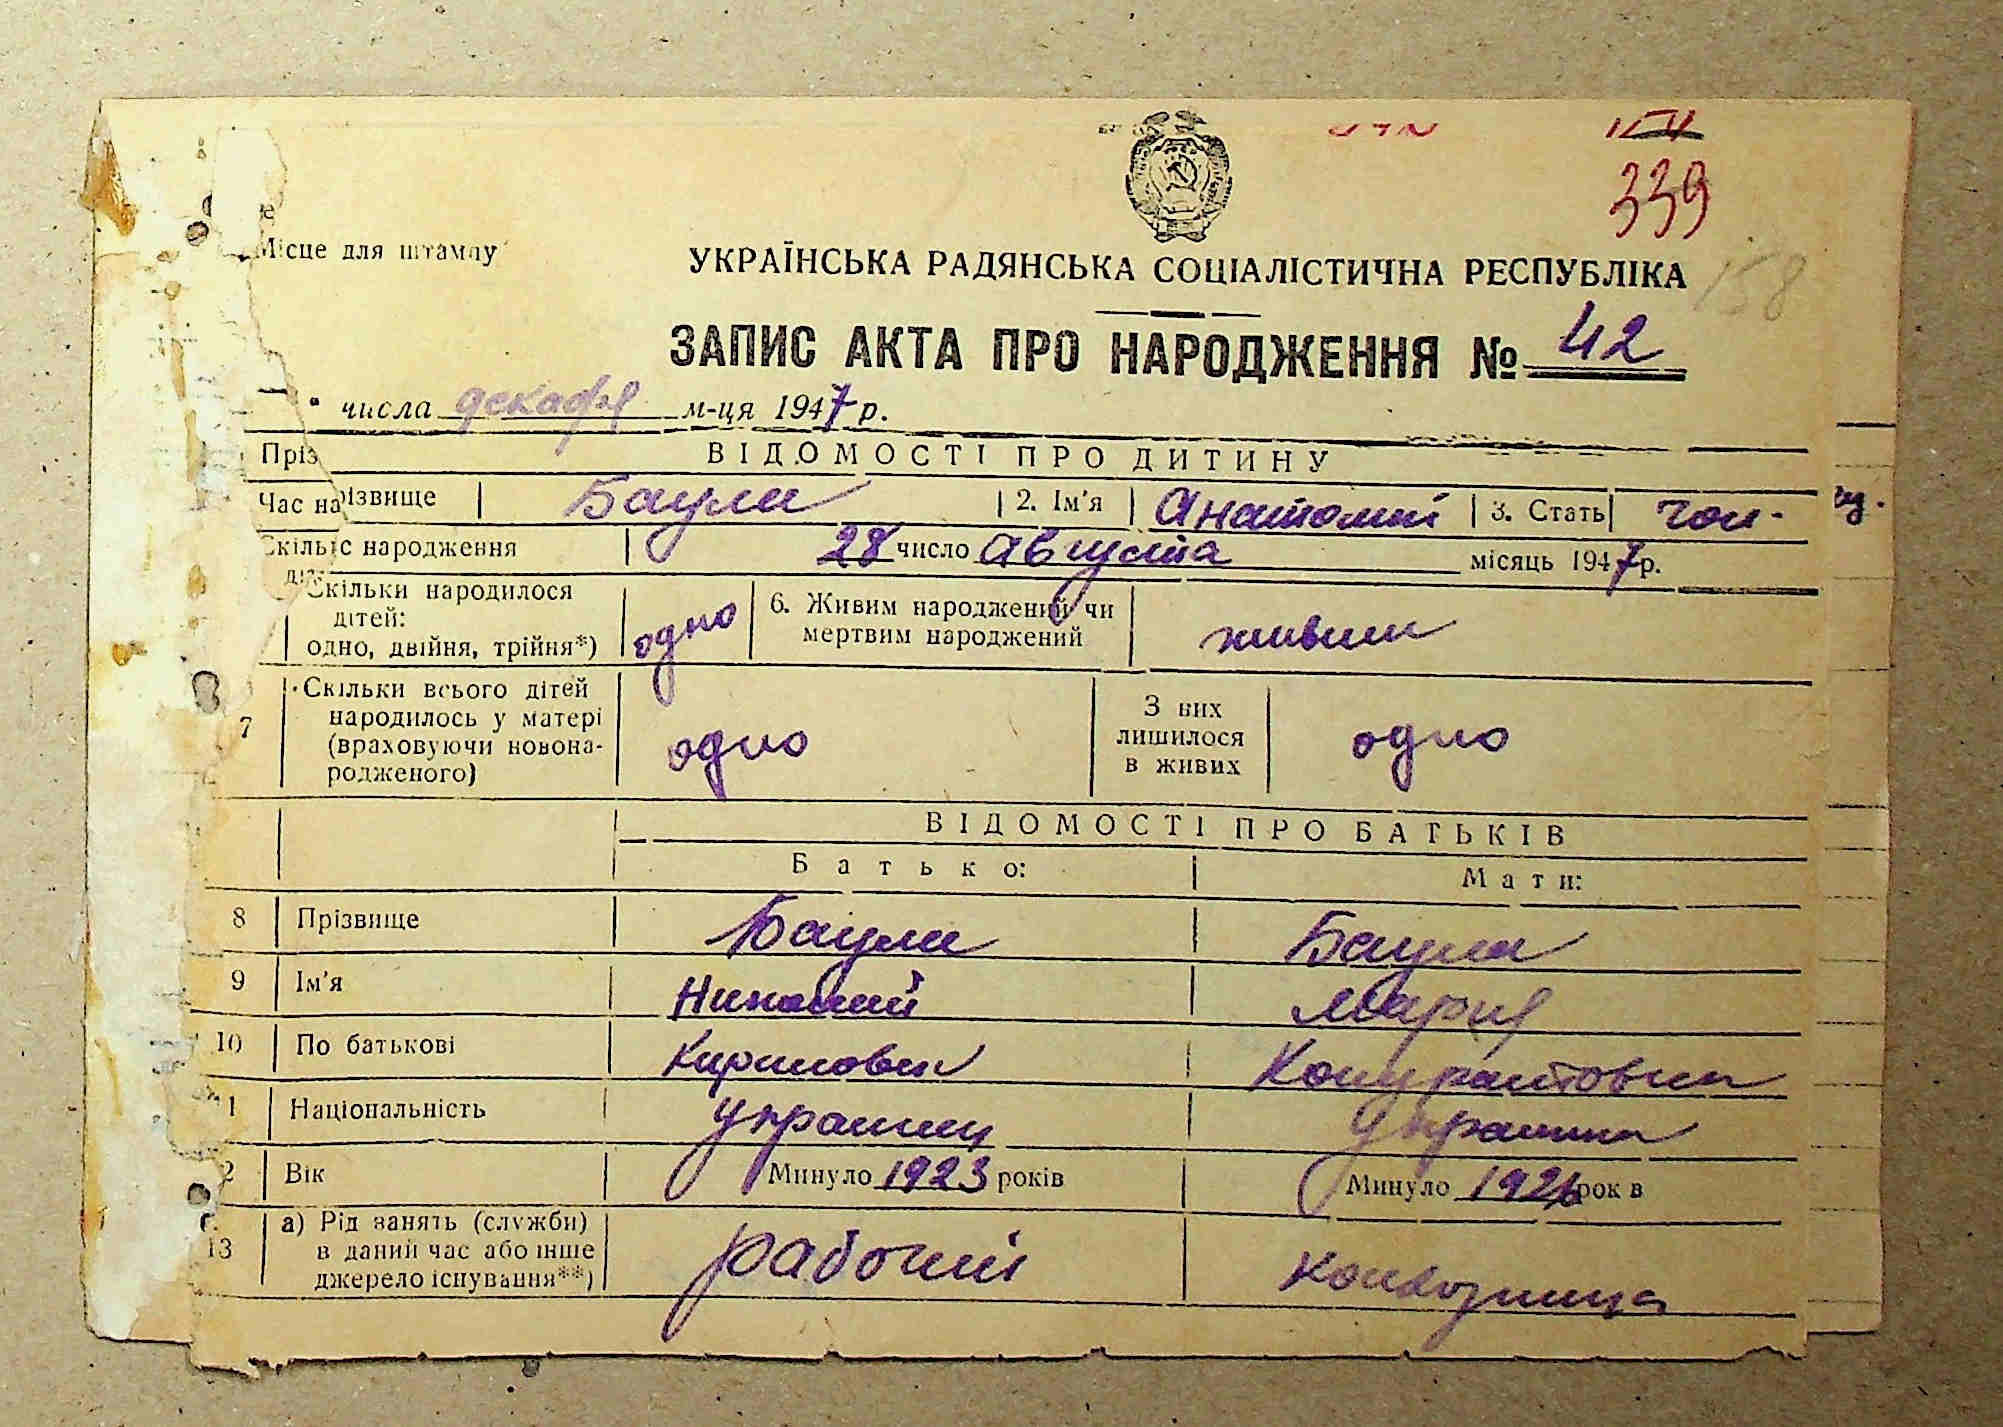 339
Місце для штампу
УКРАЇНСЬКА РАДЯНСЬКА СОЦІАЛІСТИЧНА РЕСПУБЛІКА
158
ЗАПИС АКТА ПРО НАРОДЖЕННЯ № 42
числа декабря м-ця 1947 р.
Пріз ВІДОМОСТІ ПРО ДИТИНУ
Час на різвище Баула 2. Ім'я Анатолий 3. Стать чол-
Скільс народження 28 число Августа місяць 1947 р.
Скільки народилося дітей:
одно, двійня, трійня*) одно
6. Живим народжений чи
мертвим народжений живим
7 Скільки всього дітей
народилось у матері
(враховуючи новона-
родженого) одно
З них
лишилося
в живих одно
ВІДОМОСТІ ПРО БАТЬКІВ
Батько: Мати:
8 Прізвище Баула Баула
9 Ім'я Николай Мария
10 По батькові Кирилович Кондратовна
11 Національність украинец Украинка
2 Вік Минуло 1923 років Минуло 1926 рок в
13 а) Рід занять (служби)
в даний час або інше
джерело існування**) рабочий Колхозница